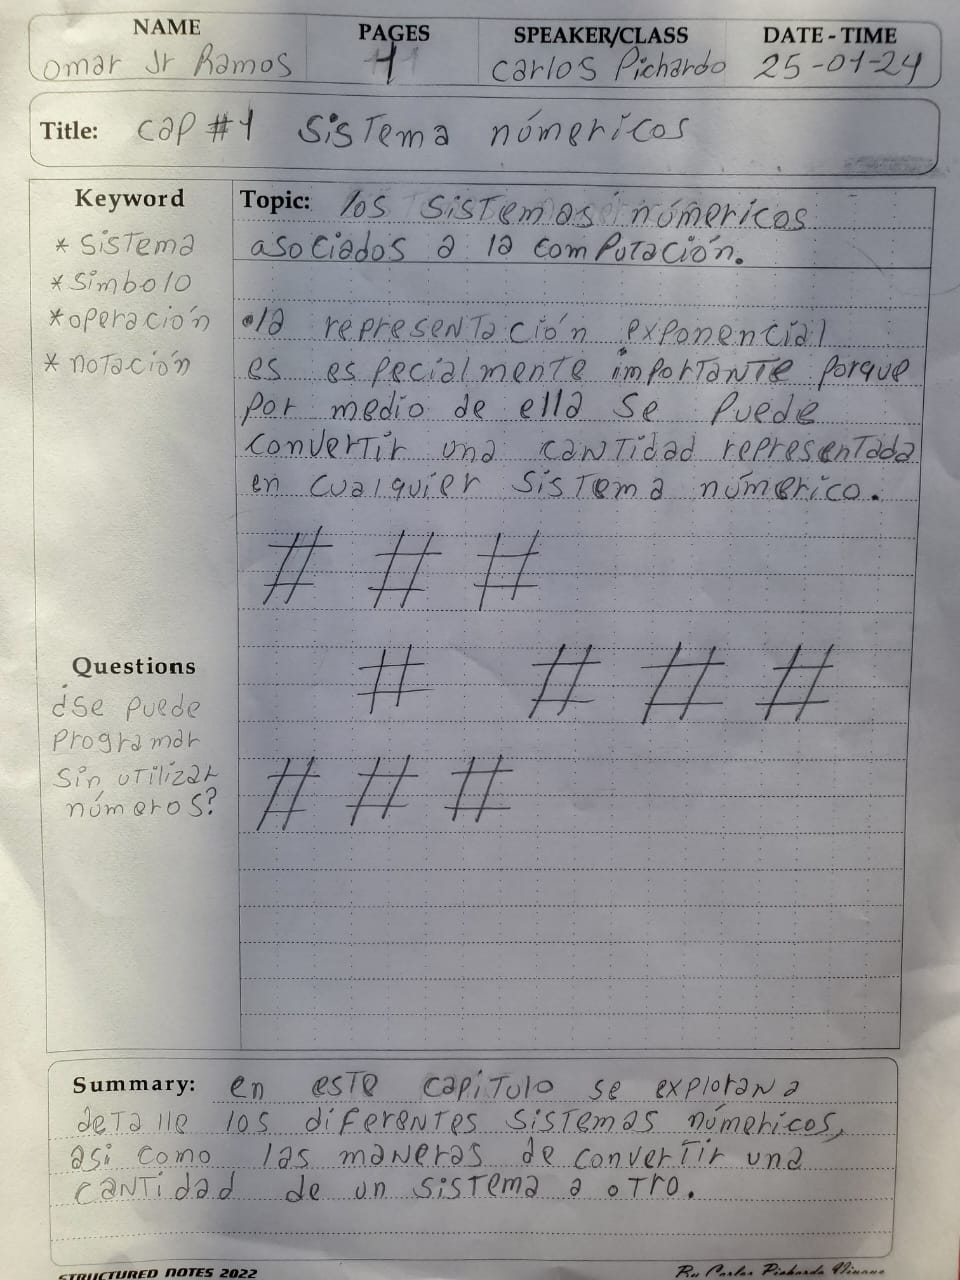 NAME PAGES SPEAKER/CLASS DATE-TIME
Omar Jr Ramos 1 Carlos Pichardo 25-01-24
Title: Cap #1 Sistema númericos
Keyword
* Sistema
* Simbolo
* operación
* notación
Topic: los Sistemas númericos
asociados a la computación.
• la representación exponencial
es especialmente importante porque
por medio de ella se puede
convertir una cantidad representada
en cualquier sistema númerico.
# # #
# # # #
# # #
Questions
¿Se puede
Programar
Sin utilizar
números?
Summary: en este capitulo se exploran a
detalle los diferentes sistemas númericos,
asi como las maneras de convertir una
cantidad de un sistema a otro.
STRUCTURED NOTES 2022 By Carlos Pichardo